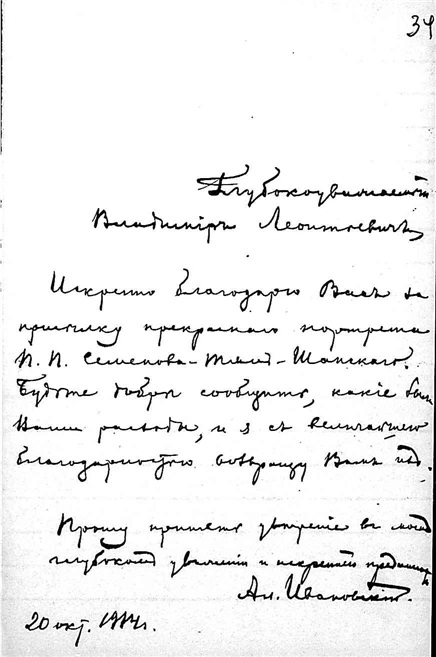 34
Глубокоуважаемый
Владиміръ Леонтьевичъ,
Искренно благодарю Васъ за
присылку прекраснаго портрета
П. П. Семенова-Тянъ-Шанскаго.
Будьте добры сообщить, какіе были
Ваши расходы, и я съ величайшею
благодарностью возвращу Вамъ ихъ.
Прошу принять увѣреніе въ моемъ
глубокомъ уваженіи и искренней преданности
Ал. Ивановскій.
20 окт. 1914г.